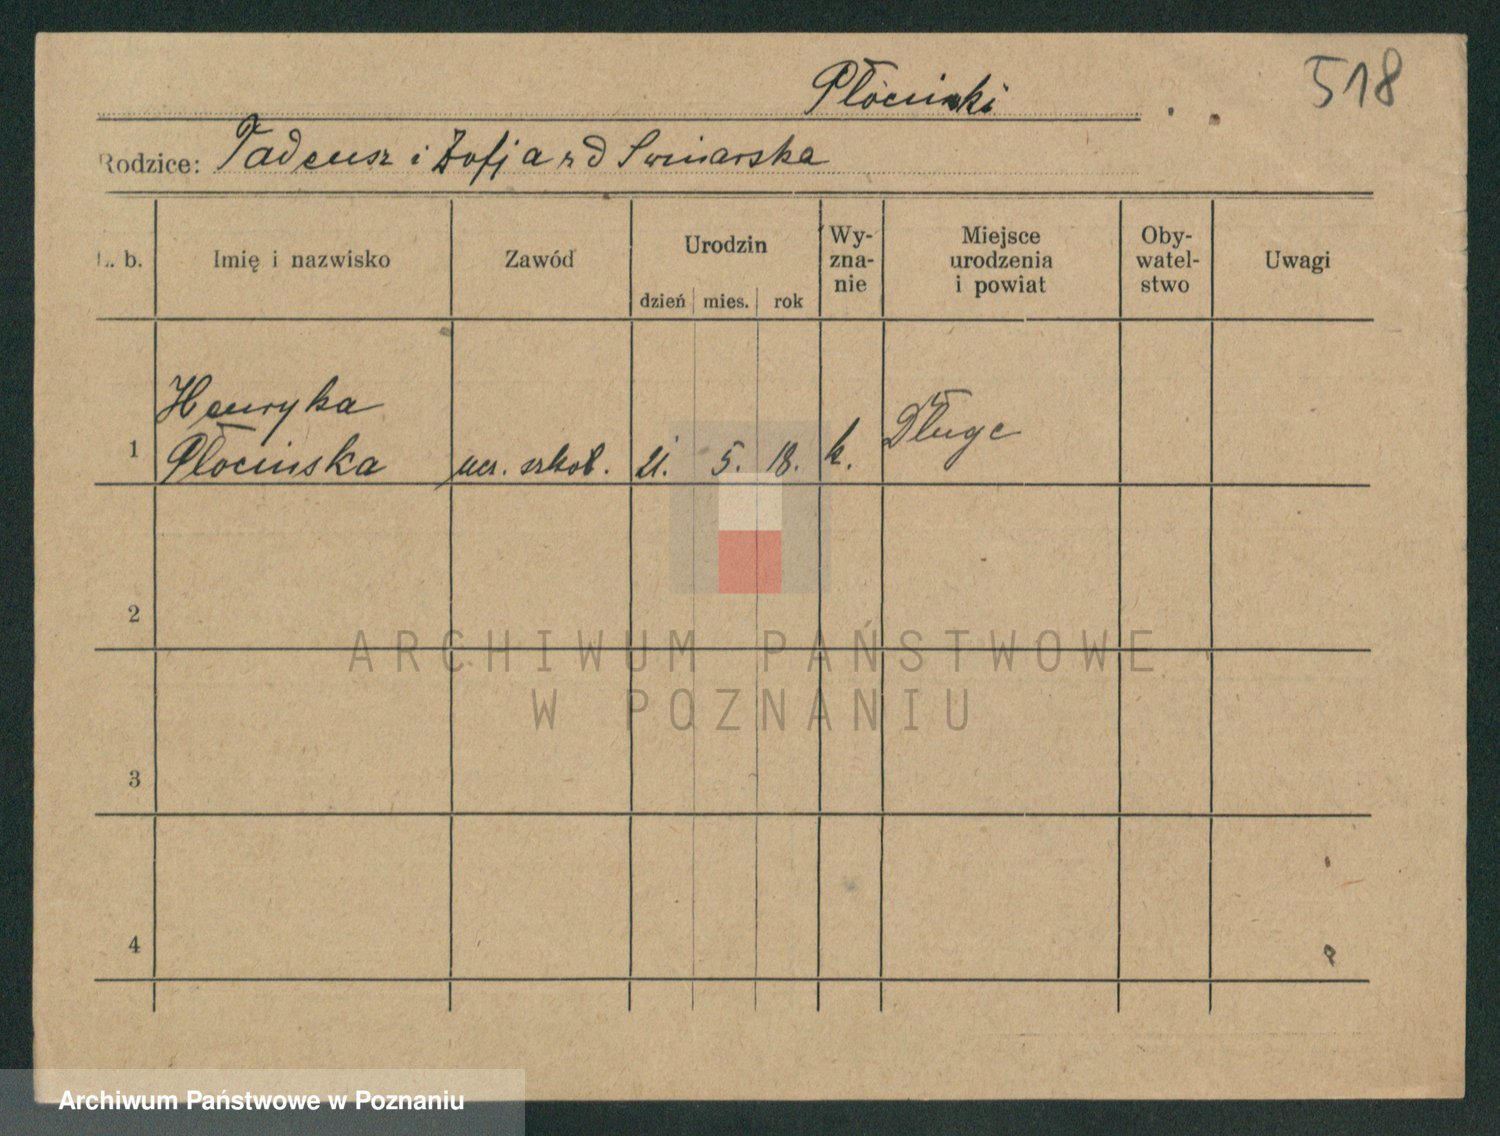 518
Płociński
Rodzice: Tadeusz i Zofja z d Swinarska
L. b.
Imię i nazwisko
Zawód
Urodzin
dzień mies. rok
Wy-
zna-
nie
Miejsce
urodzenia
i powiat
Oby-
watel-
stwo
Uwagi
Henryka
1 Płocinska ucz. szkol. 21. 5. 18. k. Długe
2
3
4
ARCHIWUM PAŃSTWOWE
W POZNANIU
Archiwum Państwowe w Poznaniu